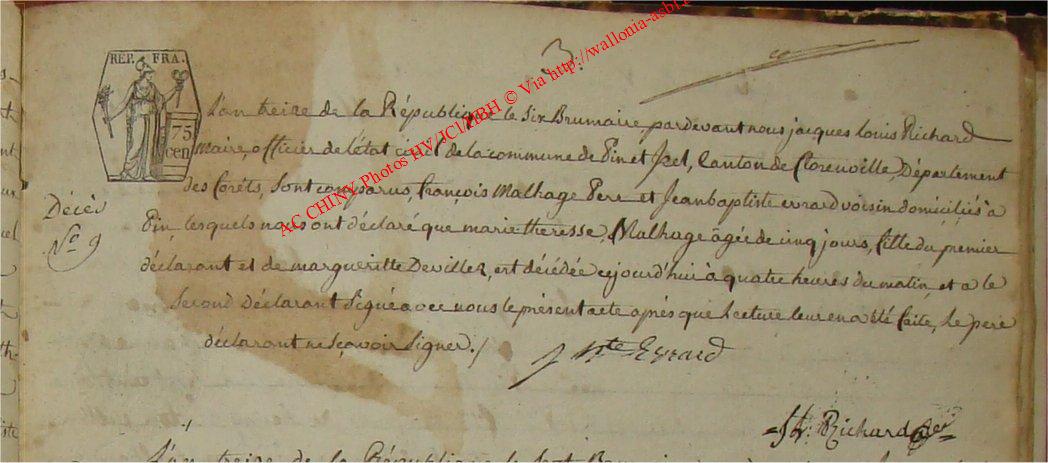 3.
REP. FRA.
75
cen
L'an treize de la République le six Brumaire, pardevant nous jacques Louis Richard
Maire, officier de l'état civil de la commune de Pin et Izel, Canton de florenville, Département
des forêts, Sont comparus, françois Malhage Pere et Jean baptiste evrard voisin domiciliés à
Pin, lesquels nous ont déclaré que marie theresse, Malhage âgée de cinq jours, fille du premier
déclarant et de margueritte Devillez, est décédée cejourd'hui à quatre heures du matin et a le
Second déclarant Signé avec nous le présent acte après que Lecture leur en a été faite, Le pere
déclarant ne sçavoir Signer./
Décès
No 9
J Bte Evrard
Richard
L'an treize de la République le Sept
AC CHINY Photos HV/JC1/HBH © Via http://wallonia-asbl.